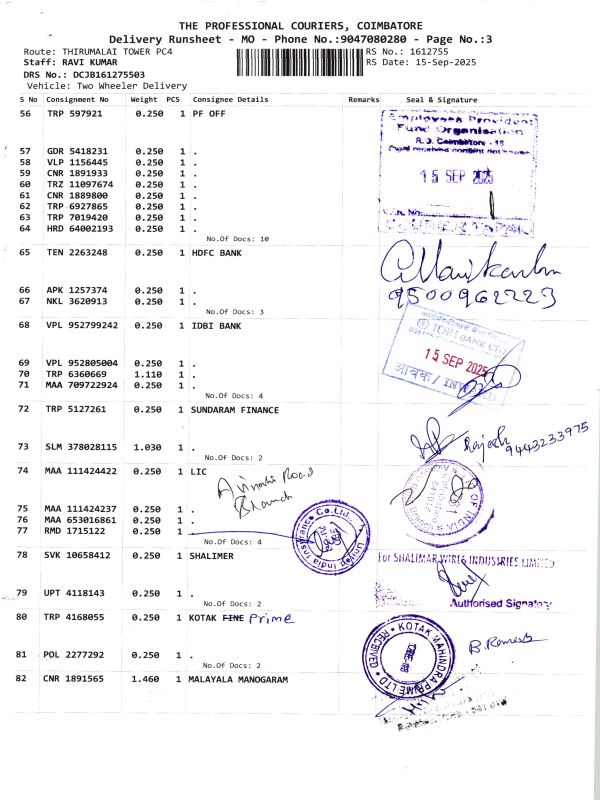 THE PROFESSIONAL COURIERS, COIMBATORE
Delivery Runsheet - MO - Phone No.:9047080280 - Page No.:3
Route: THIRUMALAI TOWER PC4
RS No.: 1612755
Staff: RAVI KUMAR
RS Date: 15-Sep-2025
DRS No.: DCJB161275503
Vehicle: Two Wheeler Delivery
S No Consignment No Weight PCS Consignee Details Remarks Seal & Signature
56 TRP 597921 0.250 1 PF OFF
Employees Provident
Fund Organisation
R. O. Coimbatore - 18
15 SEP 2025
57 GDR 5418231 0.250 1 .
58 VLP 1156445 0.250 1 .
59 CNR 1891933 0.250 1 .
60 TRZ 11097674 0.250 1 .
61 CNR 1889800 0.250 1 .
62 TRP 6927865 0.250 1 .
63 TRP 7019420 0.250 1 .
64 HRD 64002193 0.250 1 .
No.Of Docs: 10
65 TEN 2263248 0.250 1 HDFC BANK
9500962223
66 APK 1257374 0.250 1 .
67 NKL 3620913 0.250 1 .
No.Of Docs: 3
68 VPL 952799242 0.250 1 IDBI BANK
IDBI BANK LTD
15 SEP 2025
आवक /
69 VPL 952805004 0.250 1 .
70 TRP 6360669 1.110 1 .
71 MAA 709722924 0.250 1 .
No.Of Docs: 4
72 TRP 5127261 0.250 1 SUNDARAM FINANCE
Rajesh
9443233975
73 SLM 378028115 1.030 1 .
No.Of Docs: 2
74 MAA 111424422 0.250 1 LIC
Avinashi Road
Branch
OF INDIA
75 MAA 111424237 0.250 1 .
76 MAA 653016861 0.250 1 .
77 RMD 1715122 0.250 1 .
No.Of Docs: 4
United India Insurance Co.Ltd.,
78 SVK 10658412 0.250 1 SHALIMER
For SHALIMAR WIRES INDUSTRIES LIMITED
Authorised Signatory
79 UPT 4118143 0.250 1 .
No.Of Docs: 2
80 TRP 4168055 0.250 1 KOTAK FINE Prime
KOTAK MAHINDRA PRIME LTD
RECEIVED
CBE-18
B. Ramesh
81 POL 2277292 0.250 1 .
No.Of Docs: 2
82 CNR 1891565 1.460 1 MALAYALA MANOGARAM